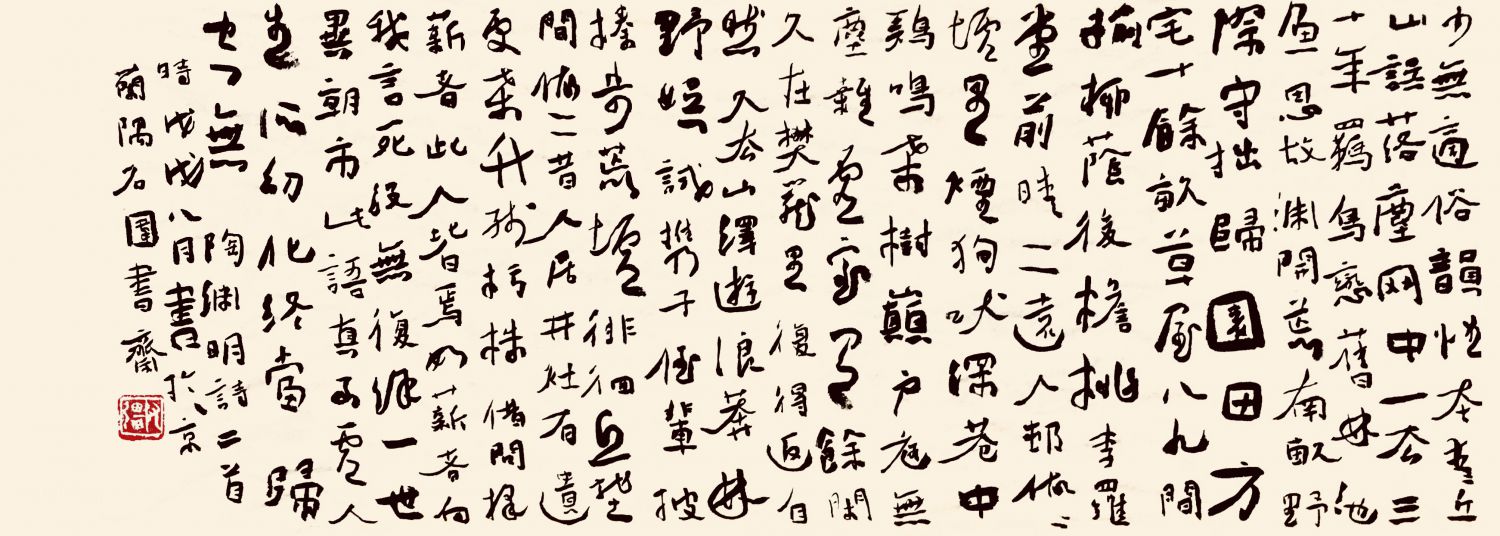 少無適俗韻性本愛丘
山誤落塵网中一去三
十年羈鳥戀舊林池
魚思故淵開荒南畝野
際守拙歸園田方
宅十餘畝草屋八九間
榆柳蔭後檐桃李羅
堂前曖二遠人邨依二
墟里煙狗吠深巷中
鷄鳴桑樹巔户庭無
塵雜虛室有餘閒
久在樊籠里復得返自
然久去山澤遊浪莽林
野娛試攜子侄輩披
榛步荒墟徘徊丘壟
間依二昔人居井灶有遺
處桑竹殘朽株借問採
薪者此人皆焉如薪者向
我言死殁無復餘一世
異朝市此語真不虛人
生似幻化終當歸
空無 陶淵明詩二首
時戊戌八月書於京
蘭書齋